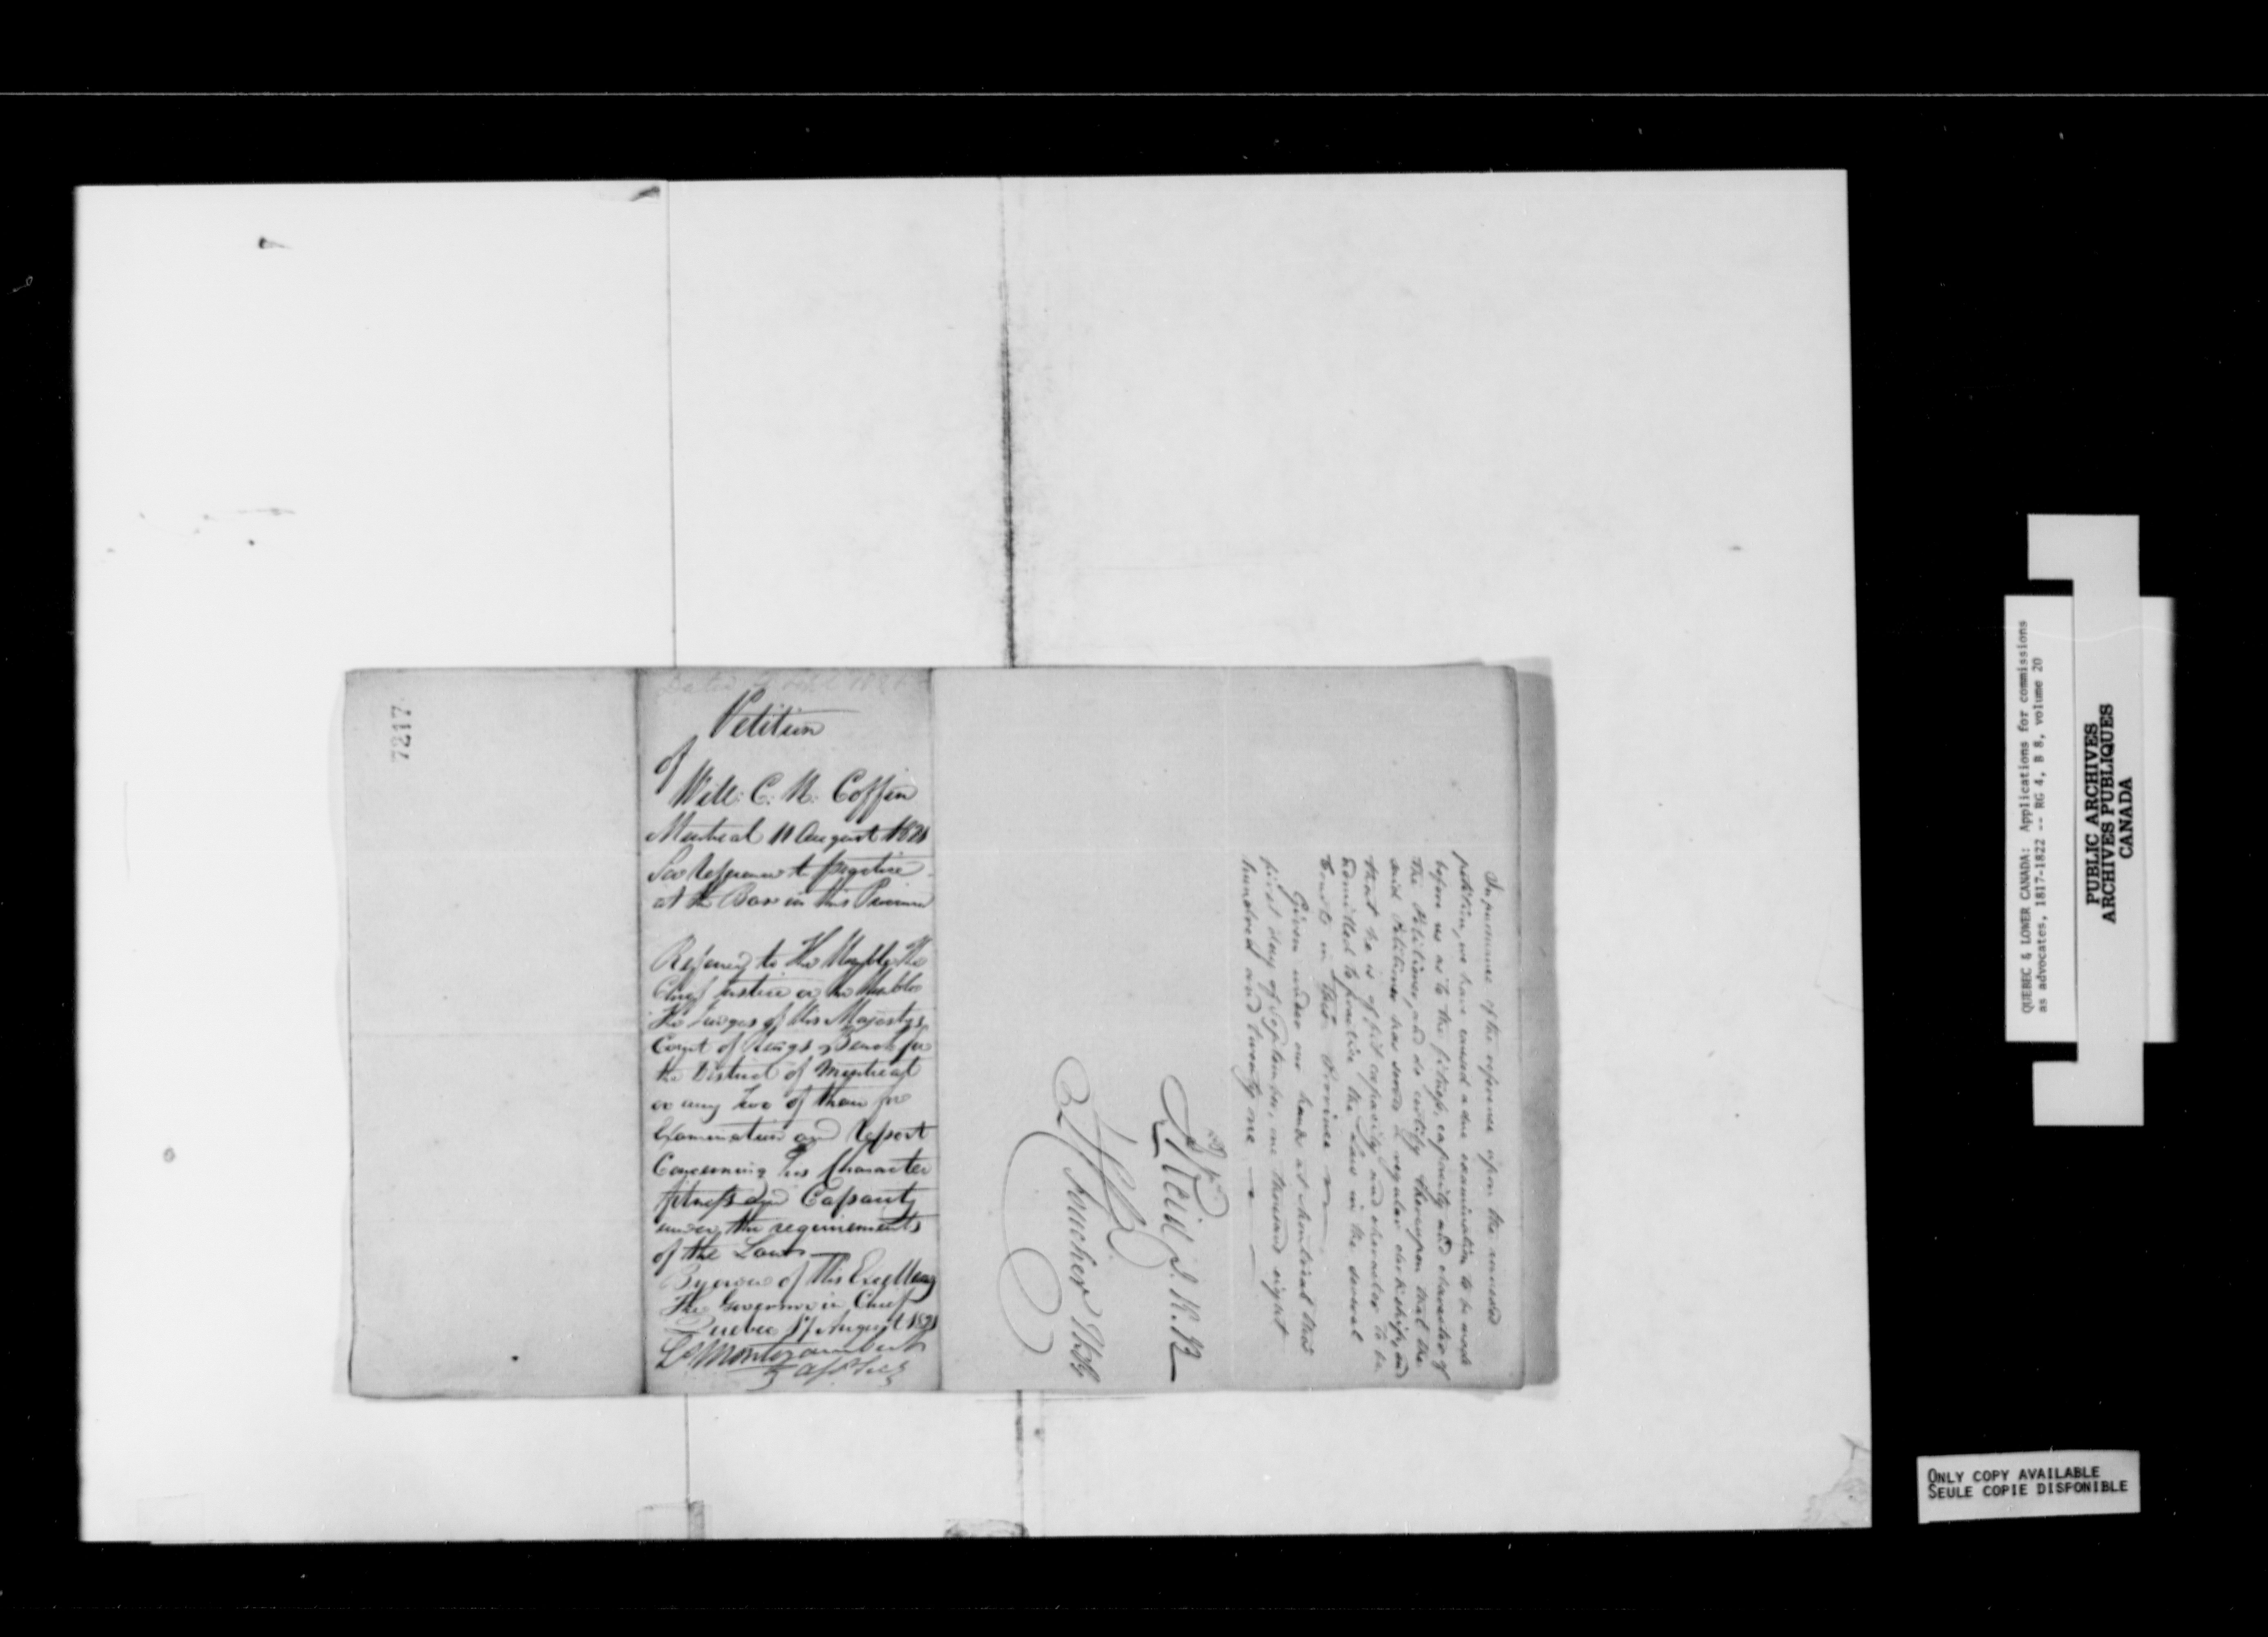 7217
Petition
of
Will: C. H. Coffin
Montreal 11 August 1821
for to practice
at the Bar in this Province
Referred to the
Chief Justice or the Honble
the Judges of His Majestys
Court of Kings Bench for
the District of Montreal
or any Two of them for
Examination and Report
Concerning his Character
fitness and Capacity
under the requirements
of the Laws
By order of His Excellency
The Governor in Chief
Quebec 17 August 1821
Ls Montizambert
In pursuance of the reference upon the annexed
petition, we have caused a due examination to be made
before us as to the fitness, capacity and character of
the Petitioner, and do certify thereupon that the
said Petitioner has served a regular clerkship, and
that he is of fit capacity and character to be
admitted to practice the Law in the several
Courts in this Province
Given under our hands at Montreal this
first day of September, one thousand eight
hundred and twenty one
J. Reid J. K. B
L. C. Foucher JKB
QUEBEC & LOWER CANADA: Applications for commissions
as advocates, 1817-1822 -- RG 4, B 8, volume 20
PUBLIC ARCHIVES
ARCHIVES PUBLIQUES
CANADA
ONLY COPY AVAILABLE
SEULE COPIE DISPONIBLE